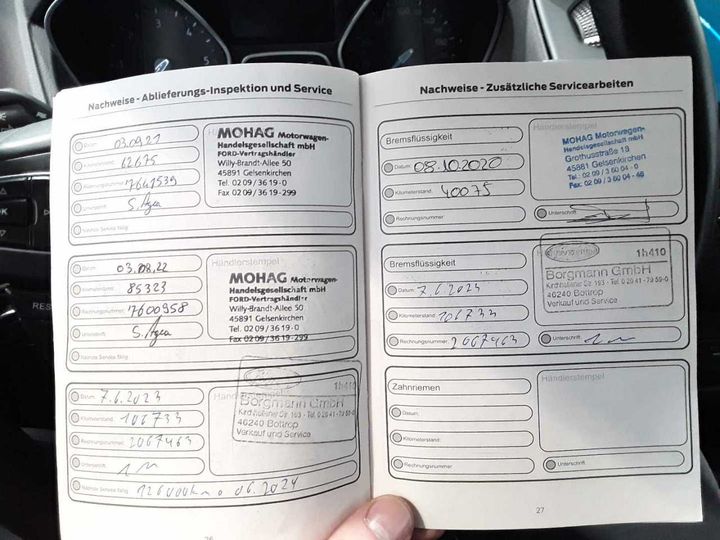 Nachweise - Ablieferungs-Inspektion und Service
Datum: 03.09.21
Kilometerstand: 62675
Rechnungsnummer: 7647539
Unterschrift:
Nächste Service fällig:
MOHAG Motorwagen-
Handelsgesellschaft mbH
FORD-Vertragshändler
Willy-Brandt-Allee 50
45891 Gelsenkirchen
Tel. 02 09 / 36 19 - 0
Fax 02 09 / 36 19 - 299
Datum: 03.08.22
Kilometerstand: 85323
Rechnungsnummer: 7600958
Unterschrift:
Nächste Service fällig:
Händlerstempel
MOHAG Motorwagen-
Handelsgesellschaft mbH
FORD-Vertragshändler
Willy-Brandt-Allee 50
45891 Gelsenkirchen
Tel. 02 09 / 36 19 - 0
Fax 02 09 / 36 19 - 299
Datum: 7.6.2023
Kilometerstand: 106733
Rechnungsnummer: 2067463
Unterschrift:
Nächste Service fällig: 126000km o 06.2024
Händlerstempel
1h410
Borgmann GmbH
46240 Bottrop
Verkauf und Service
Nachweise - Zusätzliche Servicearbeiten
Bremsflüssigkeit
Datum: 08.10.2020
Kilometerstand: 40075
Rechnungsnummer:
Händlerstempel
MOHAG Motorwagen-
Handelsgesellschaft mbH
Grothusstraße 13
45881 Gelsenkirchen
Tel.: 02 09 / 3 60 04 - 
Fax: 02 09 / 3 60 04 - 
Unterschrift:
Bremsflüssigkeit
Datum: 7.6.2023
Kilometerstand: 106733
Rechnungsnummer: 2067463
Händlerstempel
1h410
Borgmann GmbH
46240 Bottrop
Verkauf und Service
Unterschrift:
Zahnriemen
Datum:
Kilometerstand:
Rechnungsnummer:
Händlerstempel
Unterschrift:
27